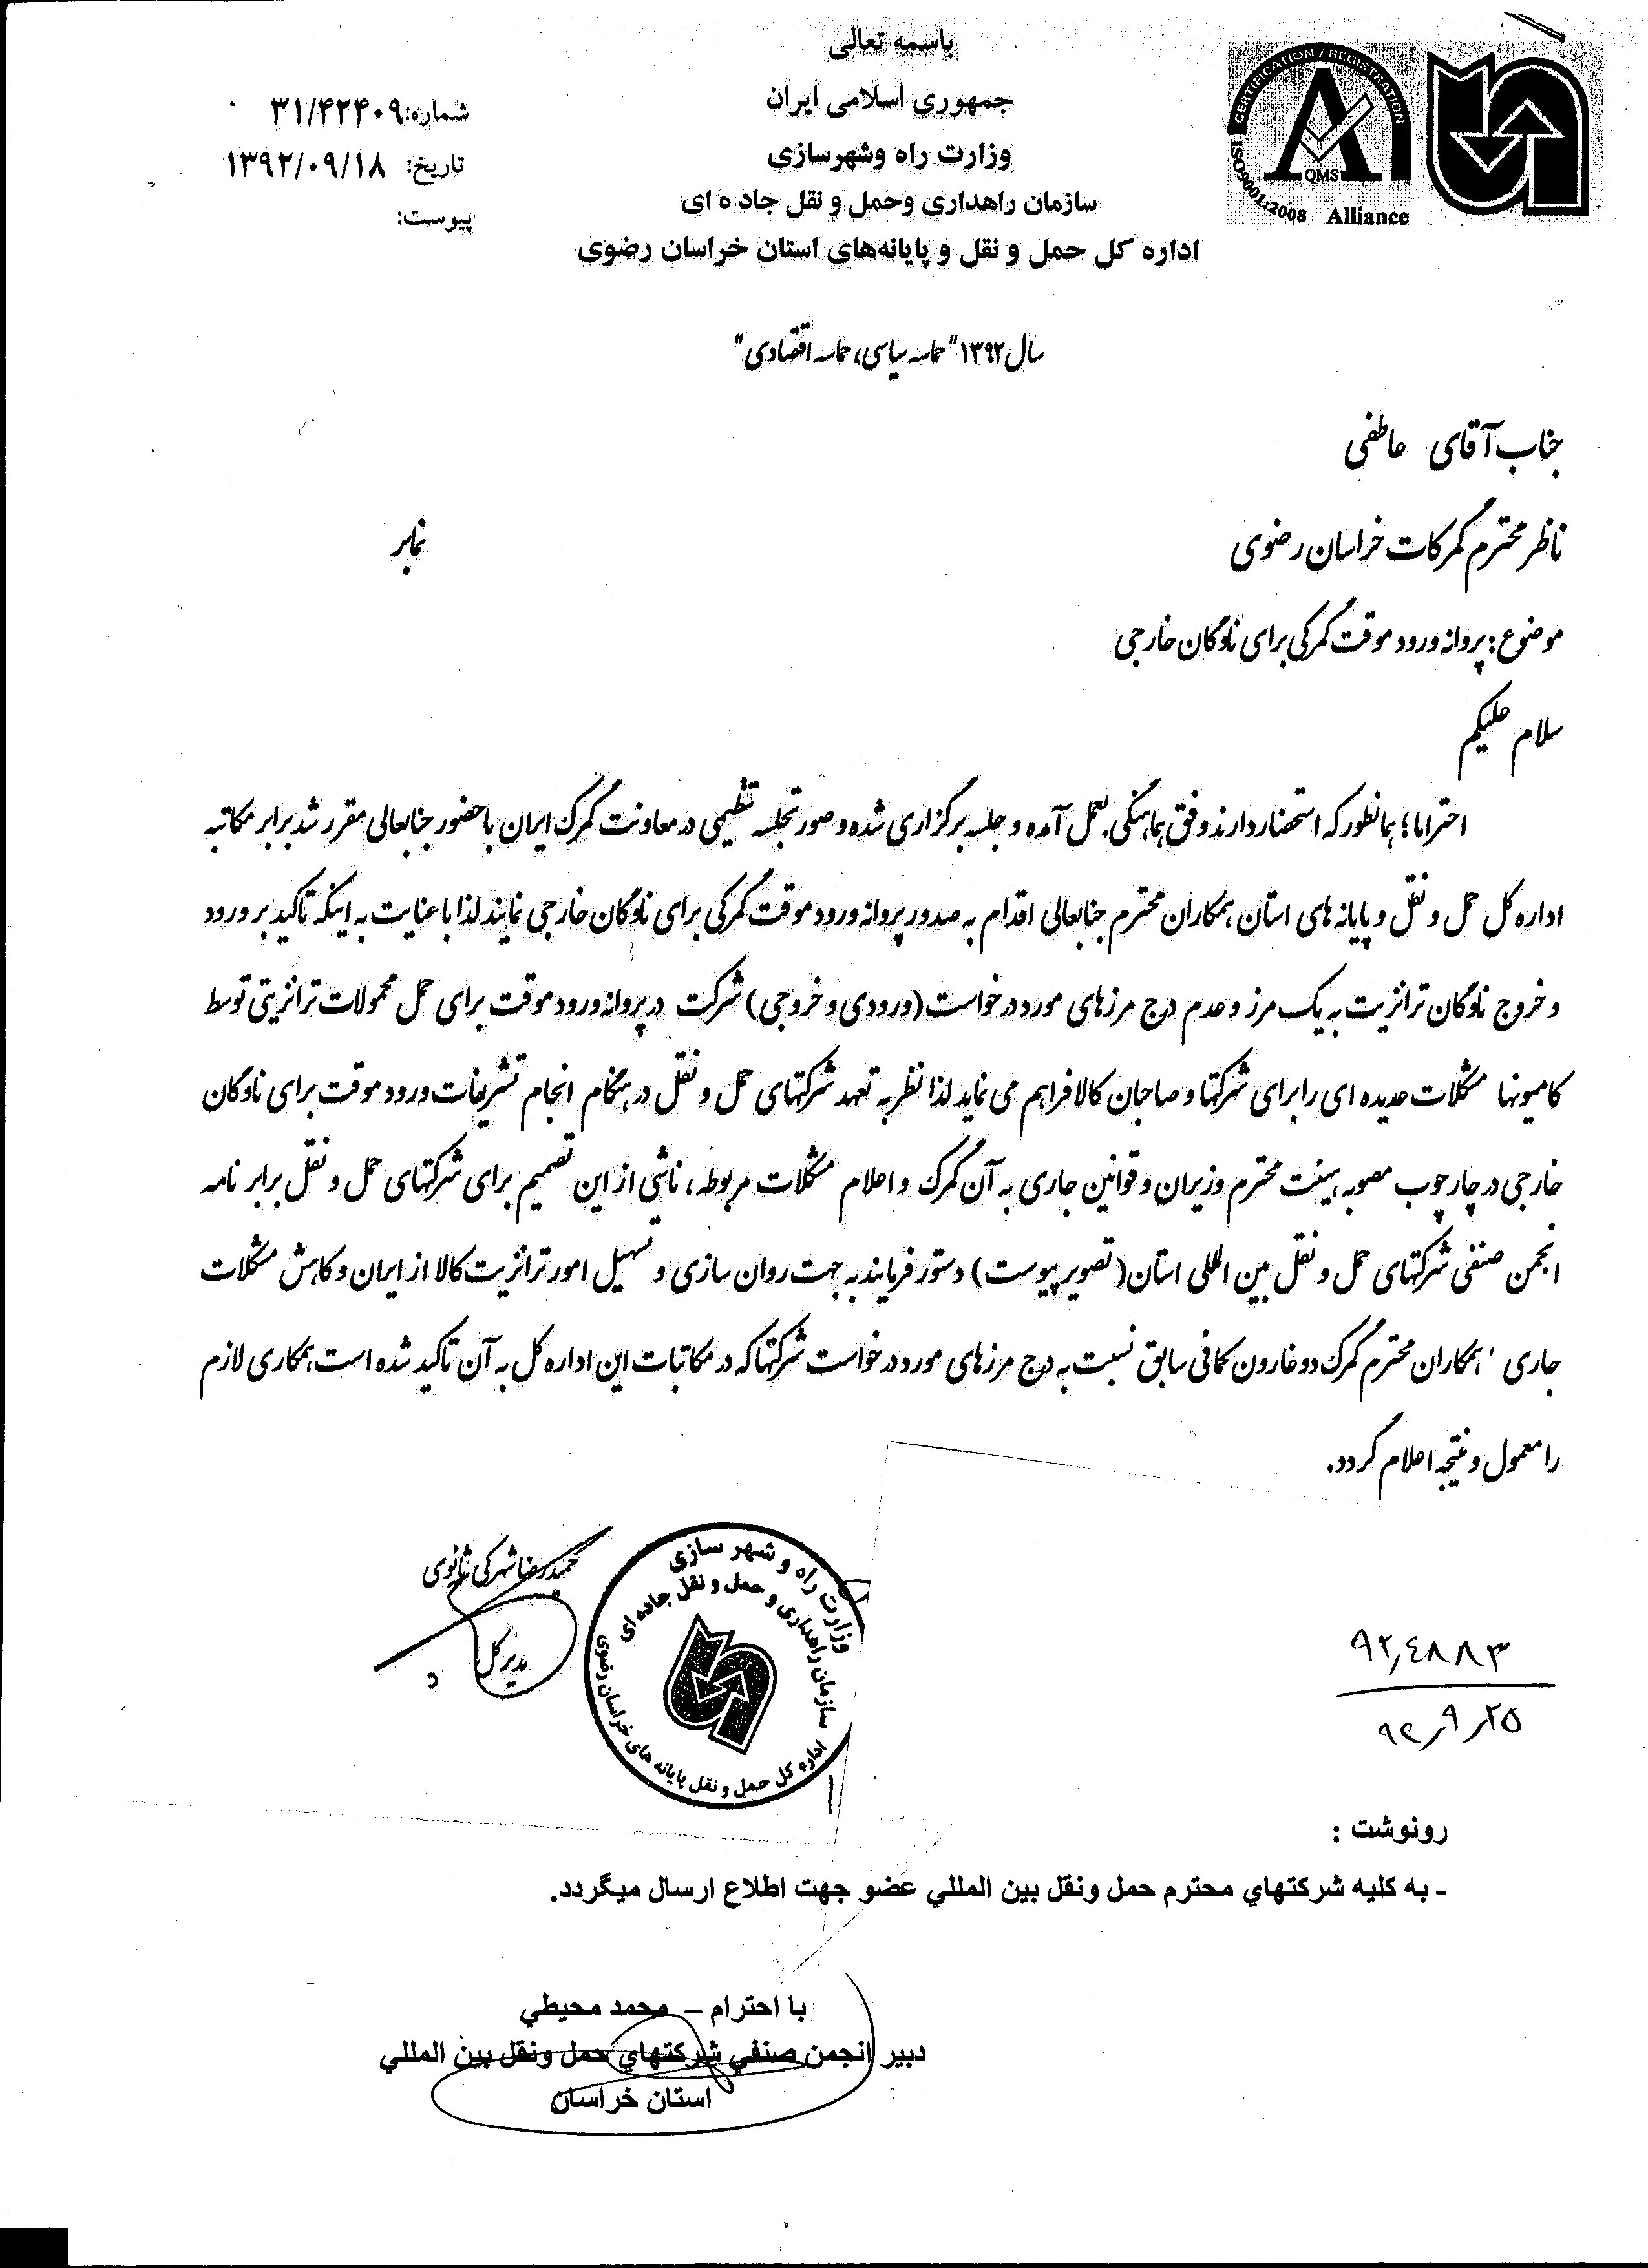 باسمه تعالی
جمهوری اسلامی ایران
وزارت راه وشهرسازی
سازمان راهداری وحمل و نقل جاده ای
اداره کل حمل و نقل و پایانه‌های استان خراسان رضوی
شماره: ۳۱/۴۲۴۰۹
تاریخ: ۱۳۹۲/۰۹/۱۸
پیوست:
CERTIFICATION / REGISTRATION
ISO9001:2008
QMS
Alliance
سال ۱۳۹۲ "حماسه سیاسی، حماسه اقتصادی"
جناب آقای عاطفی
ناظر محترم گمرکات خراسان رضوی
نمابر
موضوع: پروانه ورود موقت گمرکی برای ناوگان خارجی
سلام علیکم
احتراما؛ همانطور که استحضار دارند وفق هماهنگی بعمل آمده و جلسه برگزاری شده و صورتجلسه تنظیمی در معاونت گمرک ایران با حضور جنابعالی مقرر شد برابر مکاتبه
اداره کل حمل و نقل و پایانه های استان، همکاران محترم جنابعالی اقدام به صدور پروانه ورود موقت گمرکی برای ناوگان خارجی نمایند لذا با عنایت به اینکه تاکید بر ورود
و خروج ناوگان ترانزیت به یک مرز و عدم درج مرزهای مورد درخواست (ورودی و خروجی) شرکت در پروانه ورود موقت برای حمل محمولات ترانزیتی توسط
کامیونها مشکلات عدیده ای را برای شرکتها و صاحبان کالا فراهم می نماید لذا نظر به تعهد شرکتهای حمل و نقل در هنگام انجام تشریفات ورود موقت برای ناوگان
خارجی در چارچوب مصوبه هیئت محترم وزیران و قوانین جاری به آن گمرک و اعلام مشکلات مربوطه، ناشی از این تصمیم برای شرکتهای حمل و نقل برابر نامه
انجمن صنفی شرکتهای حمل و نقل بین المللی استان (تصویر پیوست) دستور فرمایند به جهت روان سازی و تسهیل امور ترانزیت کالا از ایران و کاهش مشکلات
جاری ، همکاران محترم گمرک دوغارون کمافی سابق نسبت به درج مرزهای مورد درخواست شرکتها که در مکاتبات این اداره کل به آن تاکید شده است، همکاری لازم
را معمول و نتیجه اعلام گردد.
حمیدرضا شهرکی ثانوی
مدیر کل
وزارت راه و شهر سازی
سازمان راهداری و حمل و نقل جاده ای
اداره کل حمل و نقل پایانه های خراسان رضوی
۹۲٫۴۸۸۳
۹۲٫۹٫۲۵
رونوشت :
- به کلیه شرکتهاي محترم حمل ونقل بین المللي عضو جهت اطلاع ارسال میگردد.
با احترام – محمد محیطي
دبیر انجمن صنفي شرکتهاي حمل ونقل بین المللي
استان خراسان